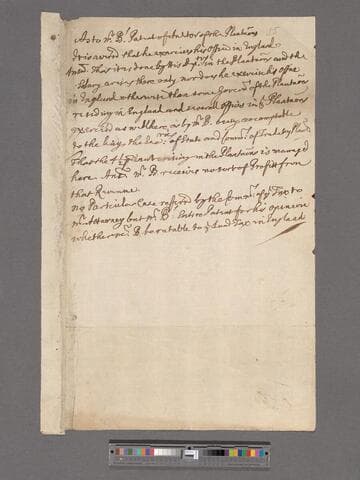 As to Mr. B.s Patent of Auditor of the Plantacons
It is averred that he exercises his office in England
Answd. That it is done by his Dpty. in the Plantacons and the
Salary arises there only, nor doth he exercise his office
in England otherwise than some Govern.rs of the Plantacons
residing in England and severall offices in ye Plantacons
exercised as well here, as by Mr. B. being accomptable
to the King, the Sec.rys of State and Comrs. of Trade & Plant.
That the 4½ p Cent arising in the Plantacons is managed
here. Answ. Mr. B receives no sort of Proffit from
that Revenue.
No Particular Case referred by the Commrs. of ye Tax to
Mr. Attorney but Mr. B. entire Patent for his opinion
whether Mr. B. be ratable to ye Land Tax in England